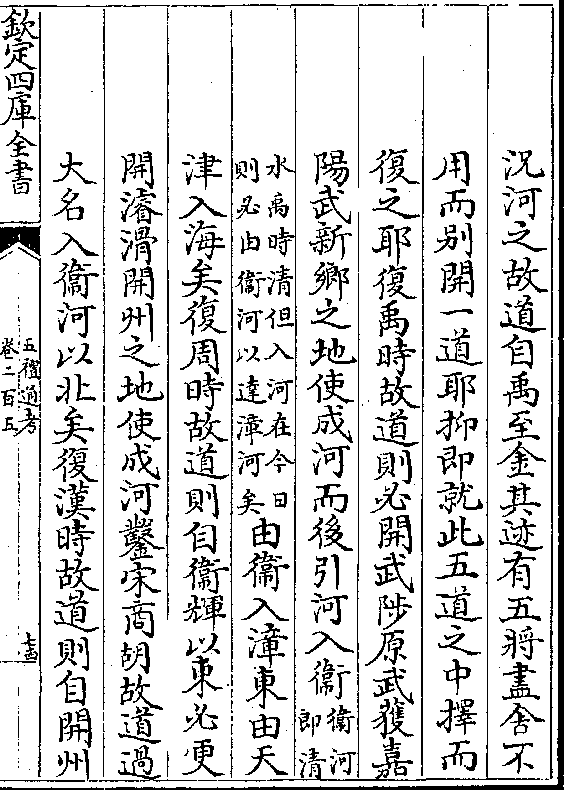 況河之故道自禹至金其迹有五將盡舍不
用而别開一道耶抑即就此五道之中擇而
復之耶復禹時故道則必開武陟原武獲嘉
陽武新鄉之地使成河而後引河入衞衞河即清
水禹時清但入河在今日則必由衞河以達漳河矣由衞入漳東由天
津入海矣復周時故道則自衞輝以東必更
開濬滑開州之地使成河鑿宋商胡故道過
大名入衞河以北矣復漢時故道則自開州
欽定四庫全書
五禮通考
卷二百五
七十四